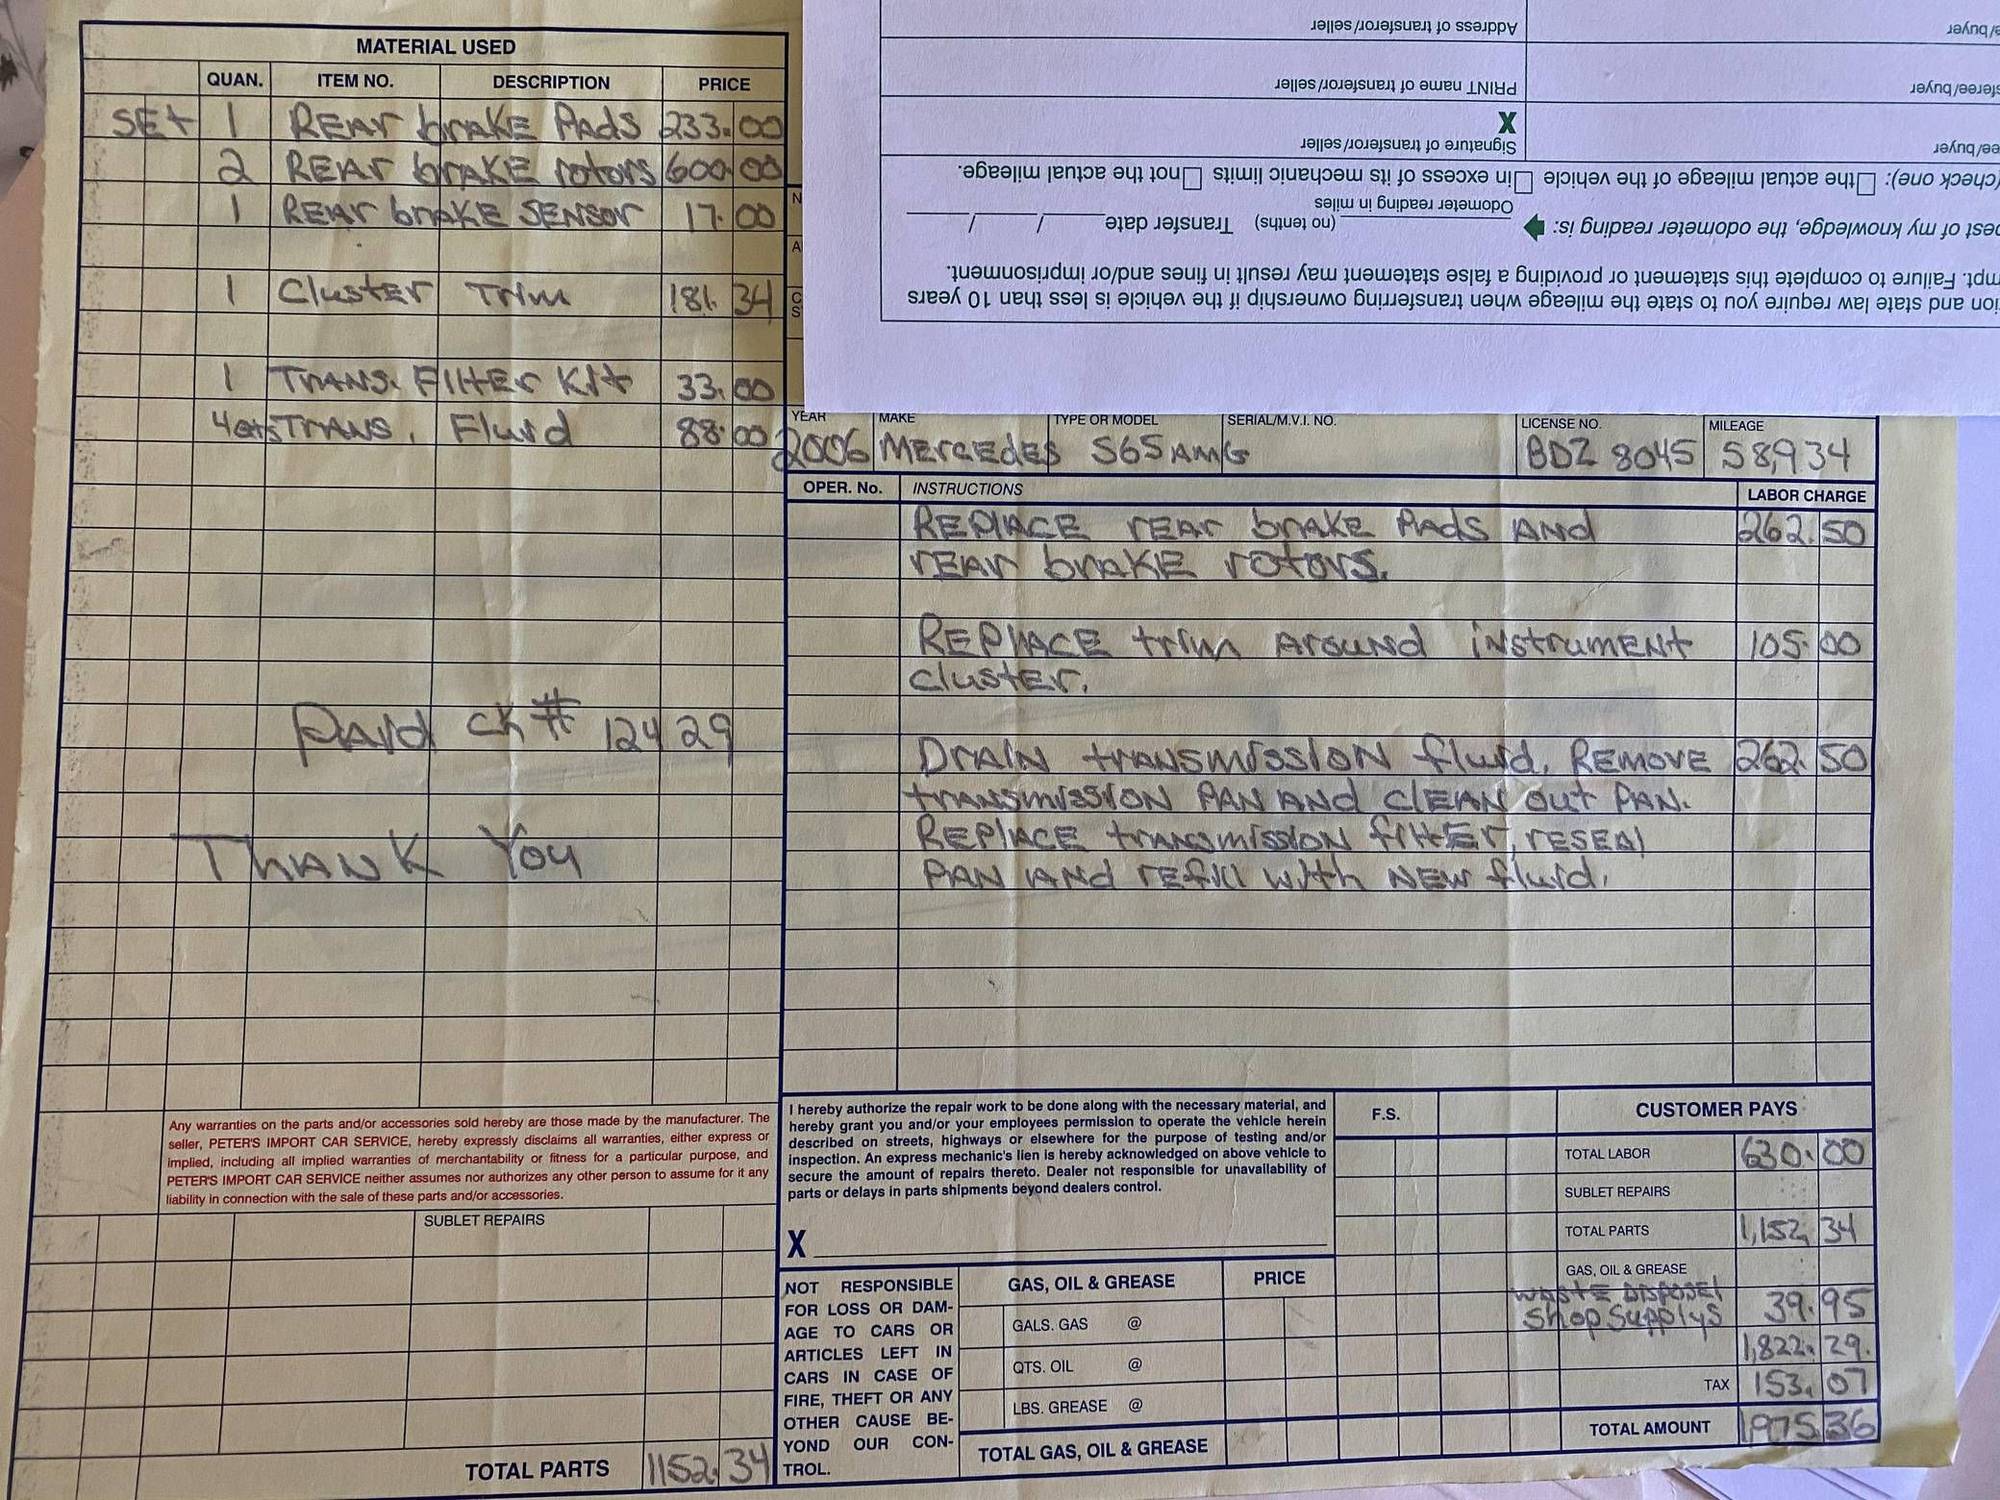 MATERIAL USED
QUAN. ITEM NO. DESCRIPTION PRICE
SET 1 REAR brAKE PAds 233.00
2 REAR brAKE rotors 600.00
1 REAR brAKE SENSOR 17.00
1 Cluster Trim 181.34
1 TRANS. Filter Kit 33.00
4qts TRANS. Fluid 88.00
Paid CK# 12429
THANK You
Any warranties on the parts and/or accessories sold hereby are those made by the manufacturer. The
seller, PETER'S IMPORT CAR SERVICE, hereby expressly disclaims all warranties, either express or
implied, including all implied warranties of merchantability or fitness for a particular purpose, and
PETER'S IMPORT CAR SERVICE neither assumes nor authorizes any other person to assume for it any
liability in connection with the sale of these parts and/or accessories.
SUBLET REPAIRS
TOTAL PARTS 1152.34
ion and state law require you to state the mileage when transferring ownership if the vehicle is less than 10 years
mpt. Failure to complete this statement or providing a false statement may result in fines and/or imprisonment.
est of my knowledge, the odometer reading is: (no tenths) Transfer date / /
Odometer reading in miles
(check one): the actual mileage of the vehicle in excess of its mechanic limits not the actual mileage.
ee/buyer Signature of transferor/seller
X
feree/buyer PRINT name of transferor/seller
e/buyer Address of transferor/seller
N
A
C
S
YEAR MAKE TYPE OR MODEL SERIAL/M.V.I. NO. LICENSE NO. MILEAGE
2006 MERCEDES S65 AMG BDZ 8045 58,934
OPER. No. INSTRUCTIONS LABOR CHARGE
REPLACE rear brAKE PAds AND 262.50
rear brAKE rotors.
REPLACE trim Around instrument 105.00
cluster.
DRAIN transmission fluid. REMOVE 262.50
transmission PAN AND CLEAN out PAN.
REPLACE transmission filter, reseal
PAN AND refill with NEW fluid.
I hereby authorize the repair work to be done along with the necessary material, and
hereby grant you and/or your employees permission to operate the vehicle herein
described on streets, highways or elsewhere for the purpose of testing and/or
inspection. An express mechanic's lien is hereby acknowledged on above vehicle to
secure the amount of repairs thereto. Dealer not responsible for unavailability of
parts or delays in parts shipments beyond dealers control.
X
NOT RESPONSIBLE
FOR LOSS OR DAM-
AGE TO CARS OR
ARTICLES LEFT IN
CARS IN CASE OF
FIRE, THEFT OR ANY
OTHER CAUSE BE-
YOND OUR CON-
TROL.
GAS, OIL & GREASE PRICE
GALS. GAS @
QTS. OIL @
LBS. GREASE @
TOTAL GAS, OIL & GREASE
F.S.
CUSTOMER PAYS
TOTAL LABOR 630.00
SUBLET REPAIRS
TOTAL PARTS 1,152.34
GAS, OIL & GREASE
WASTE DISPOSEl
Shop Supplys 39.95
1,822.29.
TAX 153.07
TOTAL AMOUNT 1,975.36